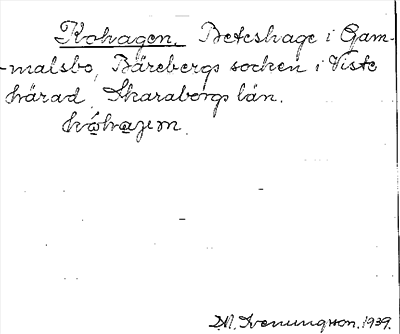 Kohagen. Beteshage i Gam-
-malsbo, Bärebergs socken i Viste
härad, Skaraborgs län.
D.M. Svenungsson. 1939.